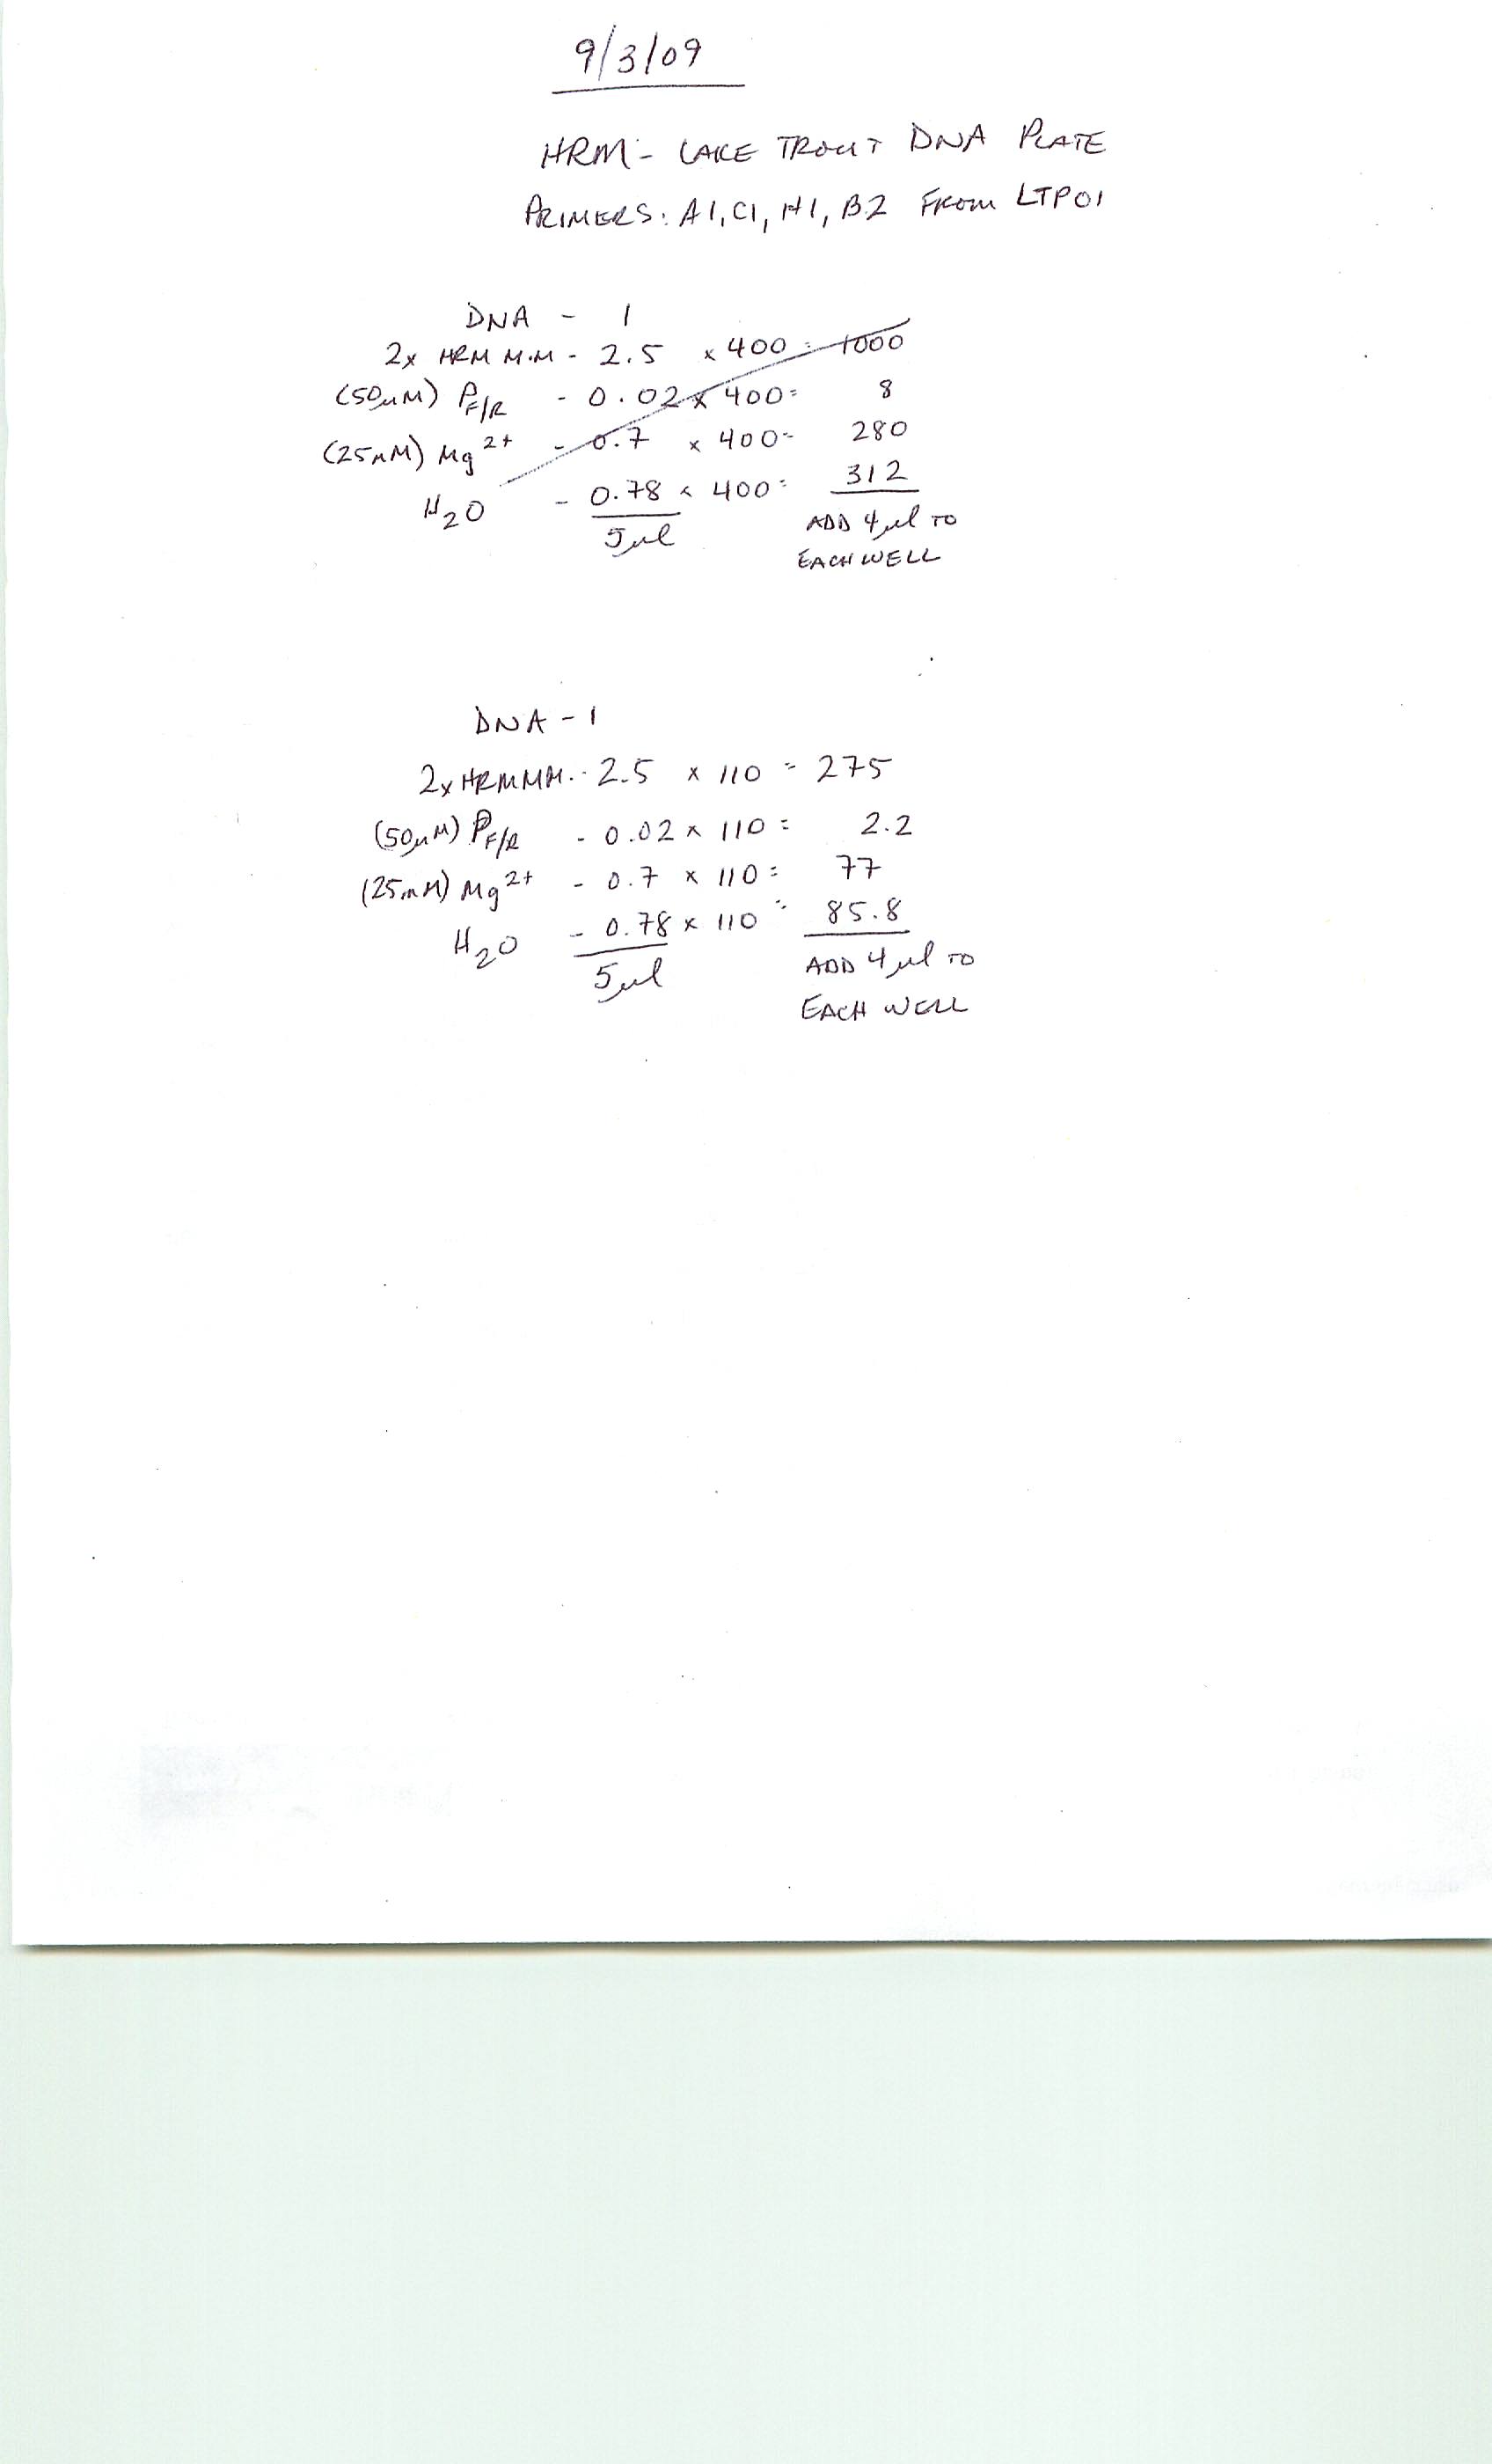 9/3/09
HRM - LAKE TROUT DNA PLATE
PRIMERS: A1, C1, H1, B2 FROM LTP01
DNA - 1
2x HRM M.M - 2.5 x 400 = 1000
(50µM) PF/R - 0.02 x 400 = 8
(25mM) Mg2+ - 0.7 x 400 = 280
H2O - 0.78 x 400 = 312
5µl ADD 4µl TO
EACH WELL
DNA - 1
2x HRM MM. - 2.5 x 110 = 275
(50µM) PF/R - 0.02 x 110 = 2.2
(25mM) Mg2+ - 0.7 x 110 = 77
H2O - 0.78 x 110 = 85.8
5µl ADD 4µl TO
EACH WELL